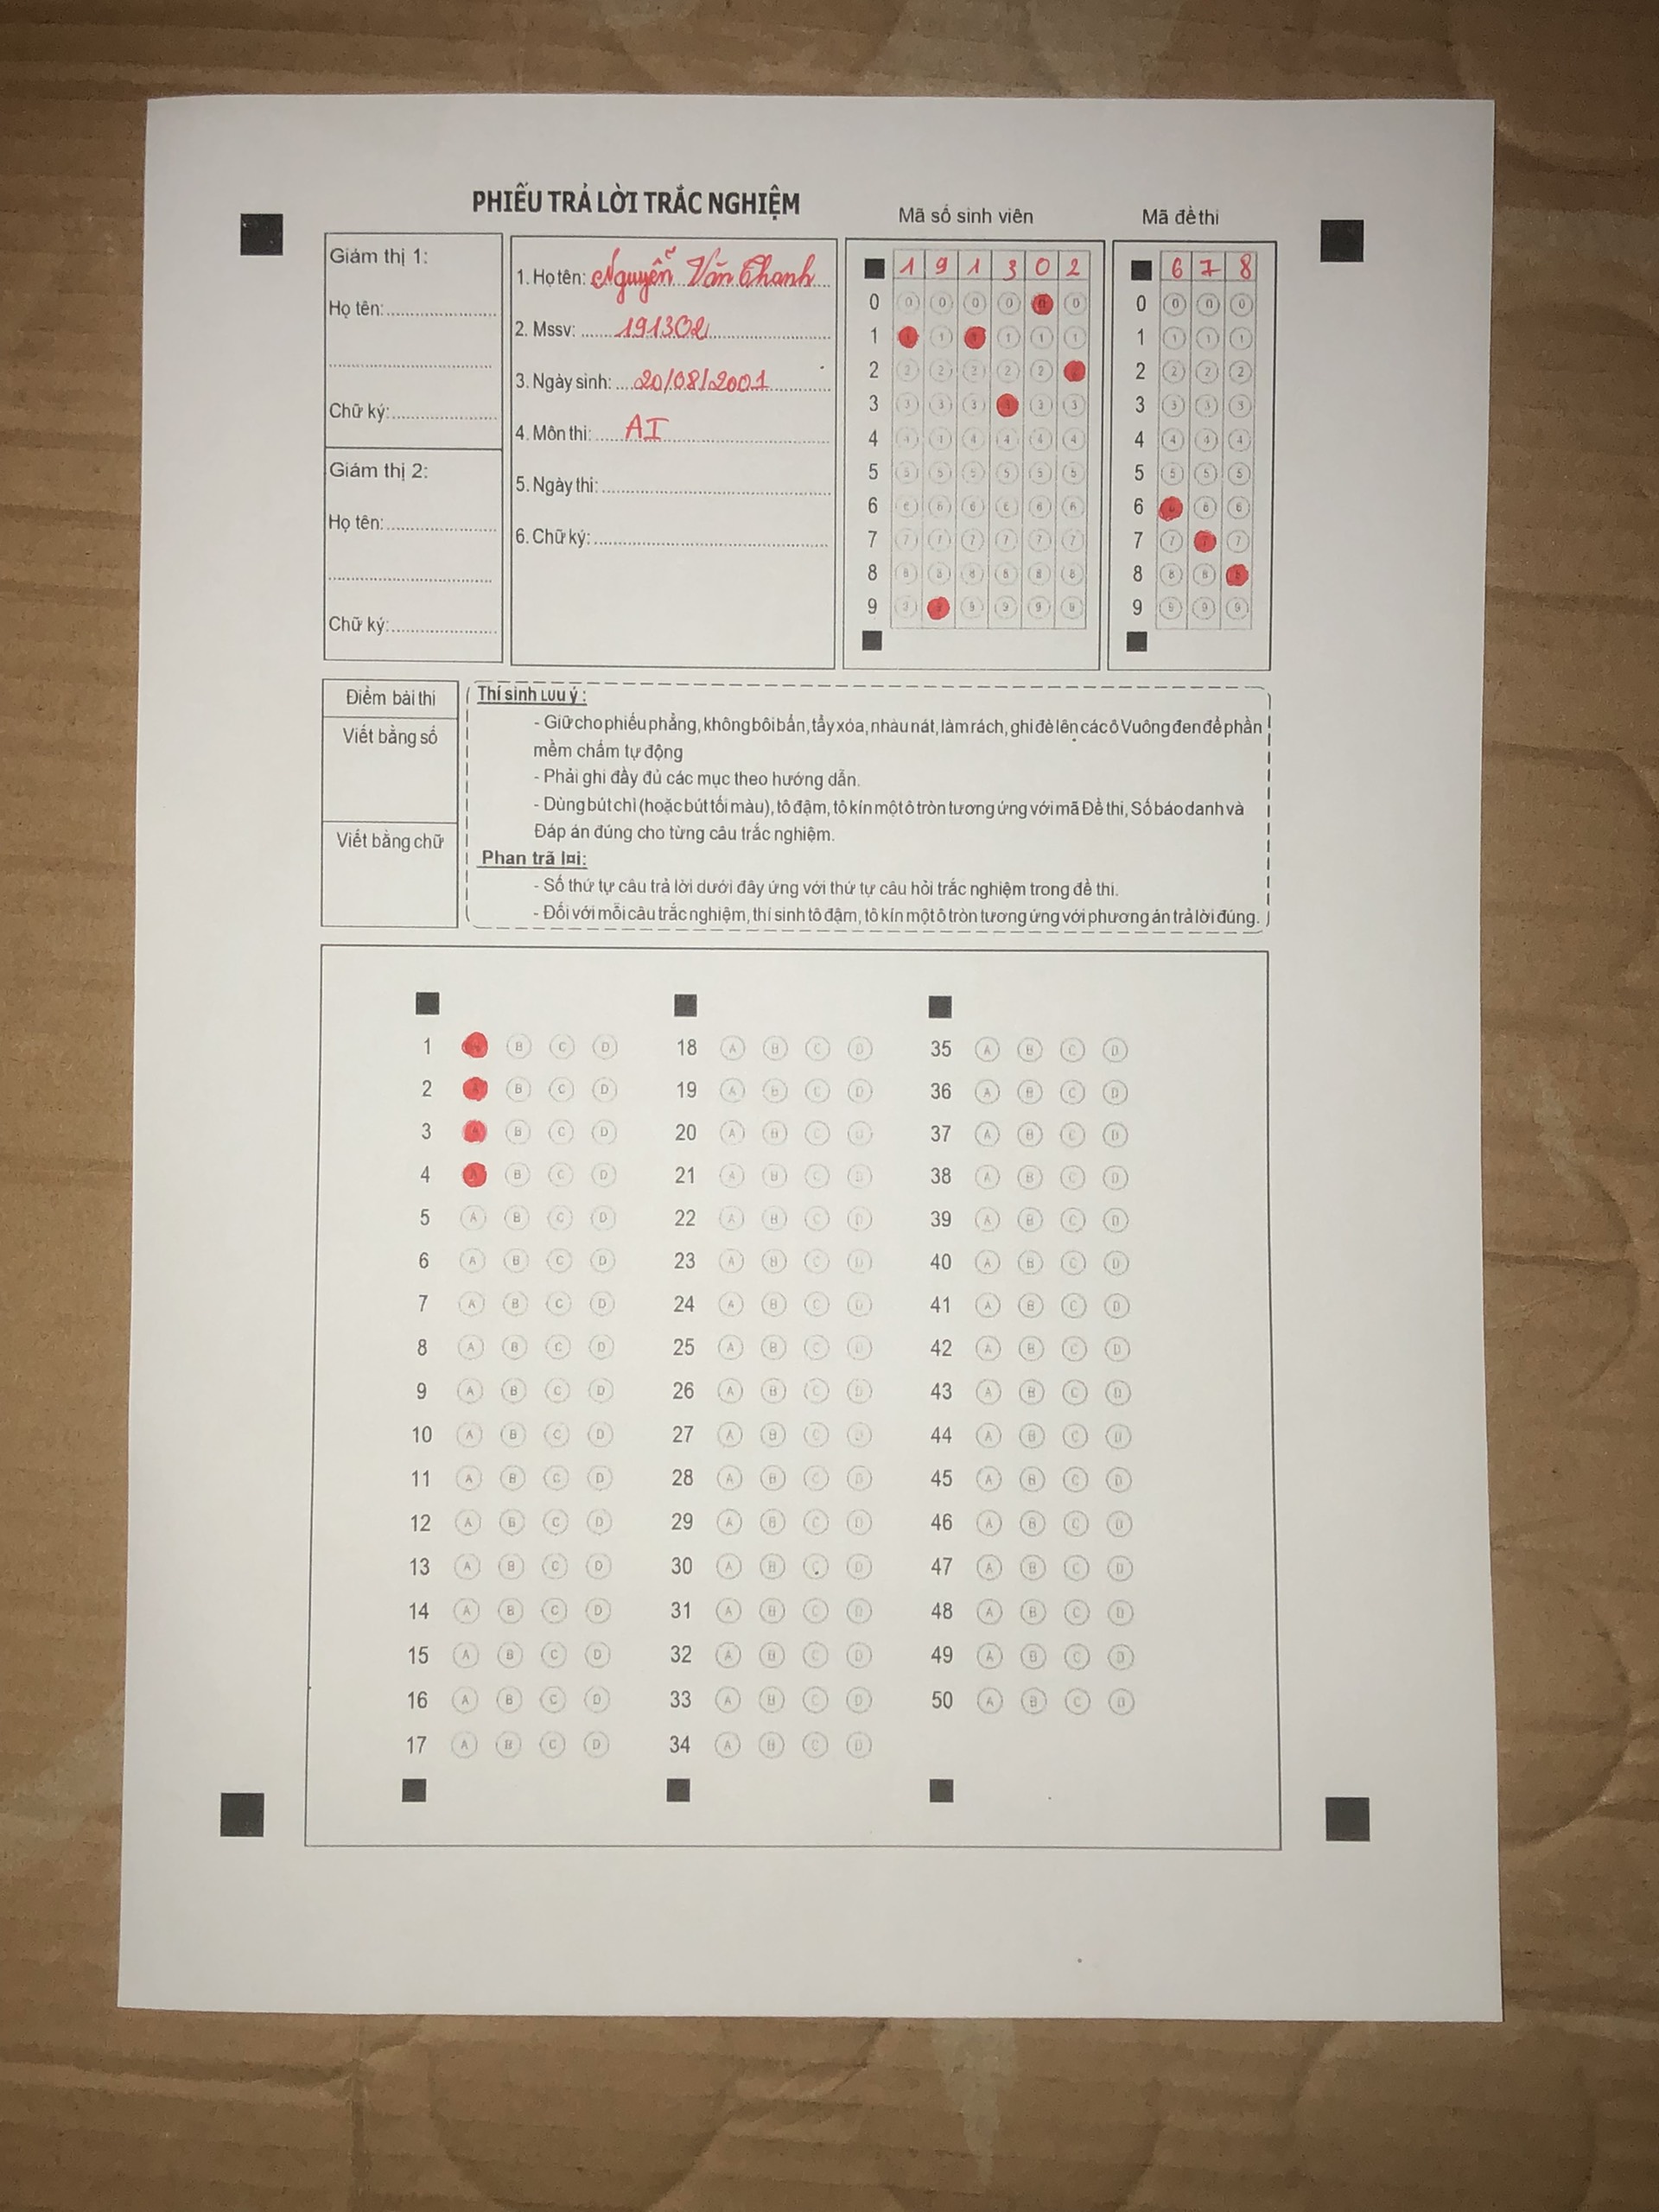 PHIẾU TRẢ LỜI TRẮC NGHIỆM
Mã số sinh viên
Mã đề thi
Giám thị 1:
Họ tên:
Chữ ký:
Giám thị 2:
Họ tên:
Chữ ký:
1. Họ tên: Nguyễn Văn Thanh
2. Mssv: 191302
3. Ngày sinh: 20/08/2001
4. Môn thi: AI
5. Ngày thi:
6. Chữ ký:
1 9 1 3 0 2
0 0 0 0 0 0 0
1 1 1 1 1 1 1
2 2 2 2 2 2 2
3 3 3 3 3 3 3
4 4 4 4 4 4 4
5 5 5 5 5 5 5
6 6 6 6 6 6 6
7 7 7 7 7 7 7
8 8 8 8 8 8 8
9 9 9 9 9 9 9
6 7 8
0 0 0 0
1 1 1 1
2 2 2 2
3 3 3 3
4 4 4 4
5 5 5 5
6 6 6 6
7 7 7 7
8 8 8 8
9 9 9 9
Điểm bài thi
Viết bằng số
Viết bằng chữ
Thí sinh Lưu ý :
- Giữ cho phiếu phẳng, không bôi bẩn, tẩy xóa, nhàu nát, làm rách, ghi đè lên các ô Vuông đen để phần
mềm chấm tự động
- Phải ghi đầy đủ các mục theo hướng dẫn.
- Dùng bút chì (hoặc bút tối màu), tô đậm, tô kín một ô tròn tương ứng với mã Đề thi, Số báo danh và
Đáp án đúng cho từng câu trắc nghiệm.
Phan trã l¤i:
- Số thứ tự câu trả lời dưới đây ứng với thứ tự câu hỏi trắc nghiệm trong đề thi.
- Đối với mỗi câu trắc nghiệm, thí sinh tô đậm, tô kín một ô tròn tương ứng với phương án trả lời đúng.
1 A B C D
2 A B C D
3 A B C D
4 A B C D
5 A B C D
6 A B C D
7 A B C D
8 A B C D
9 A B C D
10 A B C D
11 A B C D
12 A B C D
13 A B C D
14 A B C D
15 A B C D
16 A B C D
17 A B C D
18 A B C D
19 A B C D
20 A B C D
21 A B C D
22 A B C D
23 A B C D
24 A B C D
25 A B C D
26 A B C D
27 A B C D
28 A B C D
29 A B C D
30 A B C D
31 A B C D
32 A B C D
33 A B C D
34 A B C D
35 A B C D
36 A B C D
37 A B C D
38 A B C D
39 A B C D
40 A B C D
41 A B C D
42 A B C D
43 A B C D
44 A B C D
45 A B C D
46 A B C D
47 A B C D
48 A B C D
49 A B C D
50 A B C D